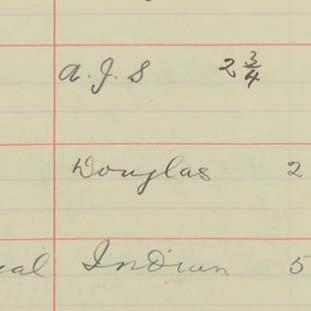 A.J.S 2 3/4
Douglas 2
Indian 5